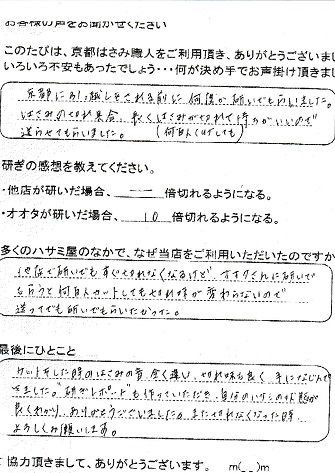 お客様の声をお聞かせください
このたびは、京都はさみ職人をご利用頂き、ありがとうございまし
いろいろ不安もあったでしょう・・・何が決め手でお声掛け頂きまし
京都に引っ越しをされる前に何度か研いでもらいました。
はさみの切れ具合、長くはさみが切れて持ちがいいので
送らせてもらいました。(何百人CUTしても)
研ぎの感想を教えてください。
・他店が研いだ場合、 ー 倍切れるようになる。
・オオタが研いだ場合、 10 倍切れるようになる。
多くのハサミ屋のなかで、なぜ当店をご利用いただいたのですか
他店で研いでもすぐ切れなくなるけど、オオタさんに研いで
もらうと何百人カットしても切れ味が変わらないので
送ってでも研いでもらいたかった。
最後にひとこと
カットした時のはさみの音、全く違い、切れ味も良く、手になじんで
きました。"研ぎレポート"も作っていただき、自分のハサミの状態が
良くわかり、ありがとうございました。また切れなくなった時、
よろしくお願いします。
協力頂きまして、ありがとうございます。 m(__)m